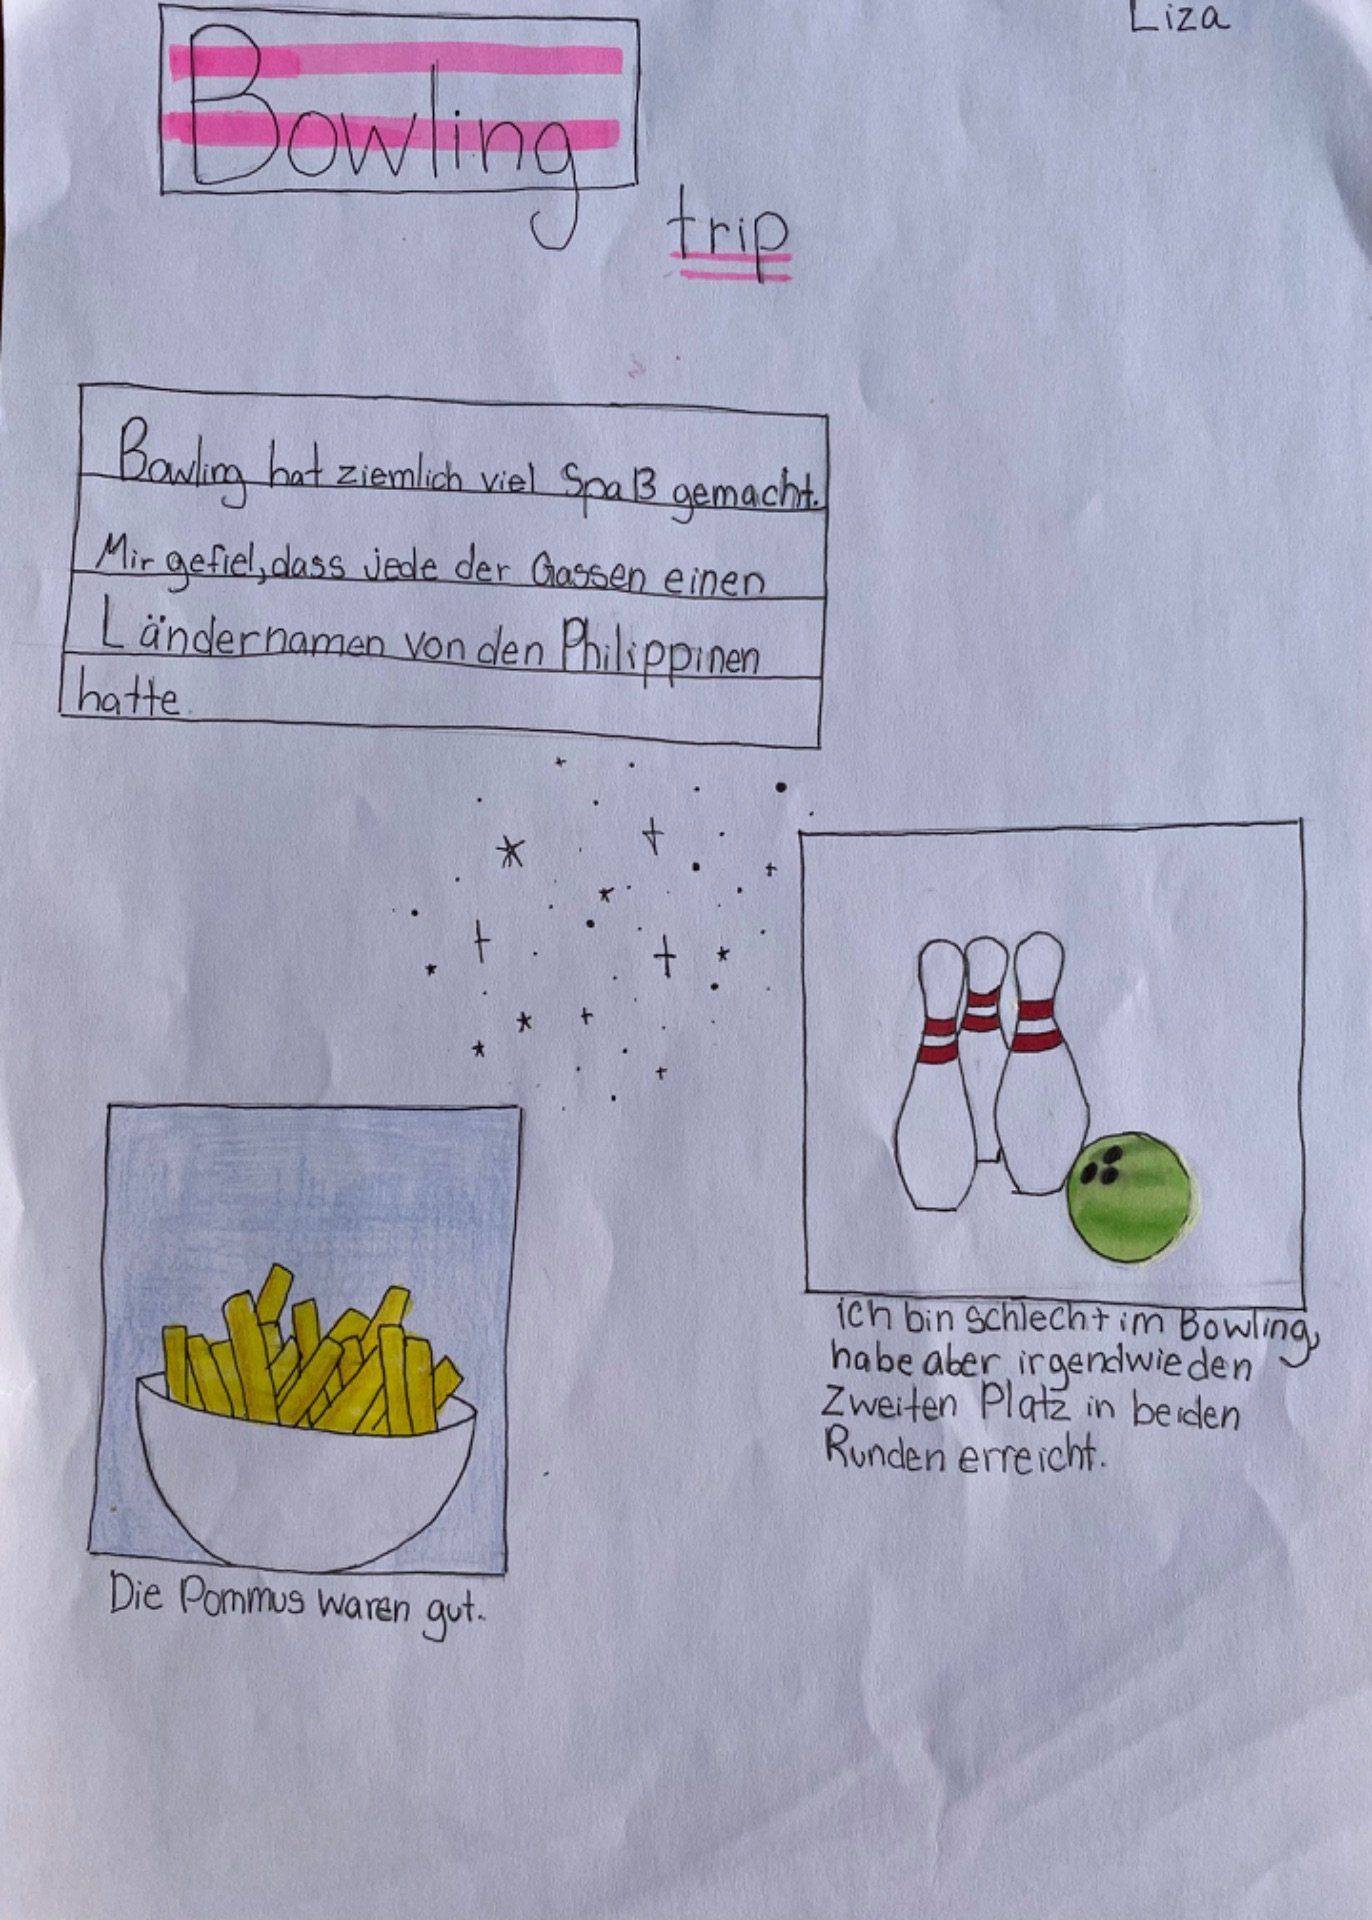 Liza
Bowling
trip
Bowling hat ziemlich viel Spaß gemacht.
Mir gefiel, dass jede der Gassen einen
Ländernamen von den Philippinen
hatte.
ich bin schlecht im Bowling,
habe aber irgendwie den
Zweiten Platz in beiden
Runden erreicht.
Die Pommus waren gut.